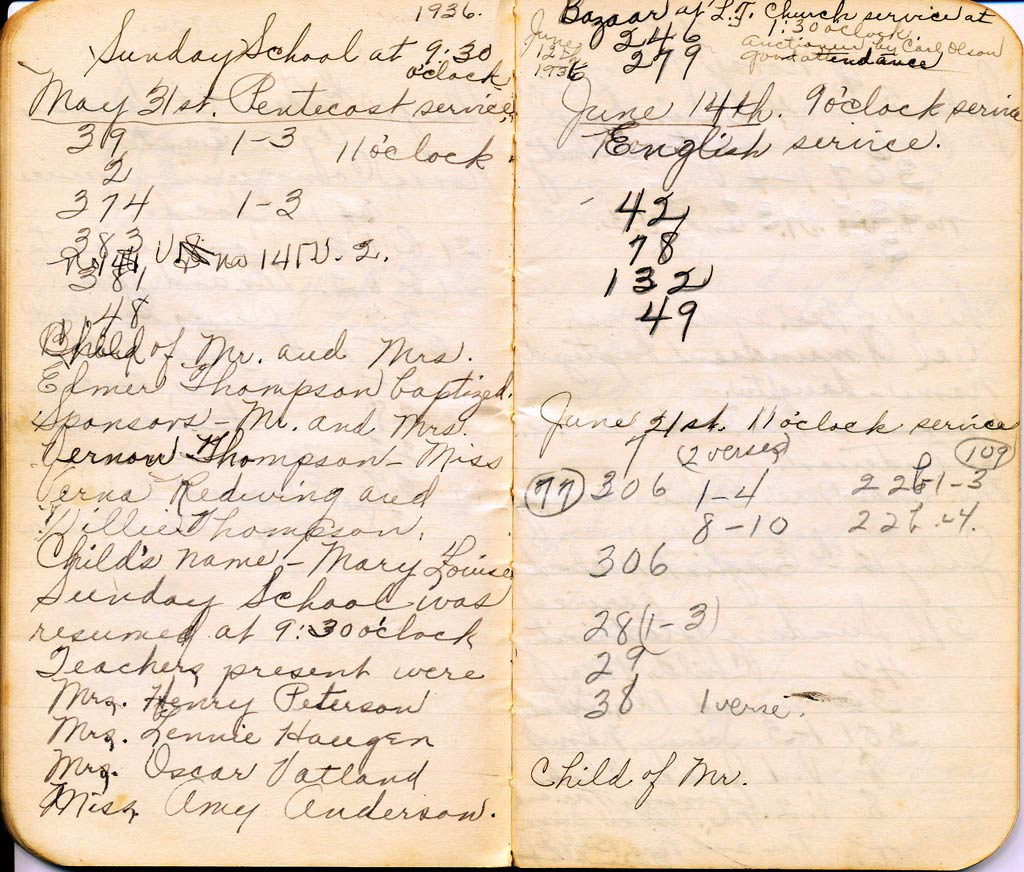 1936.
Sunday School at 9:30
o'clock
May 31st. Pentecost service,
39 1-3 11 o'clock
2
374 1-3
383
no 141 V. 2.
381
48
Child of Mr. and Mrs.
Elmer Thompson baptized.
Sponsors - Mr. and Mrs.
Vernon Thompson - Miss
Verna Rediving and
Willie Thompson.
Child's name - Mary Louise
Sunday School was
resumed at 9:30 o'clock
Teachers present were
Mrs. Henry Peterson
Mrs. Lennie Haugen
Mrs. Oscar Vatland
Miss Amy Anderson.
Bazaar at L.F. Church service at
1:30 o'clock
June 246 auctioneer by Carl Olson
12th 279 good attendance
1936
June 14th. 9 o'clock service
English service.
42
78
132
49
June 21st. 11 o'clock service
(2 verses) 109
77 306 1-4 226-1-3
8-10 226-4.
306
28(1-3)
29
38 1 verse.
Child of Mr.